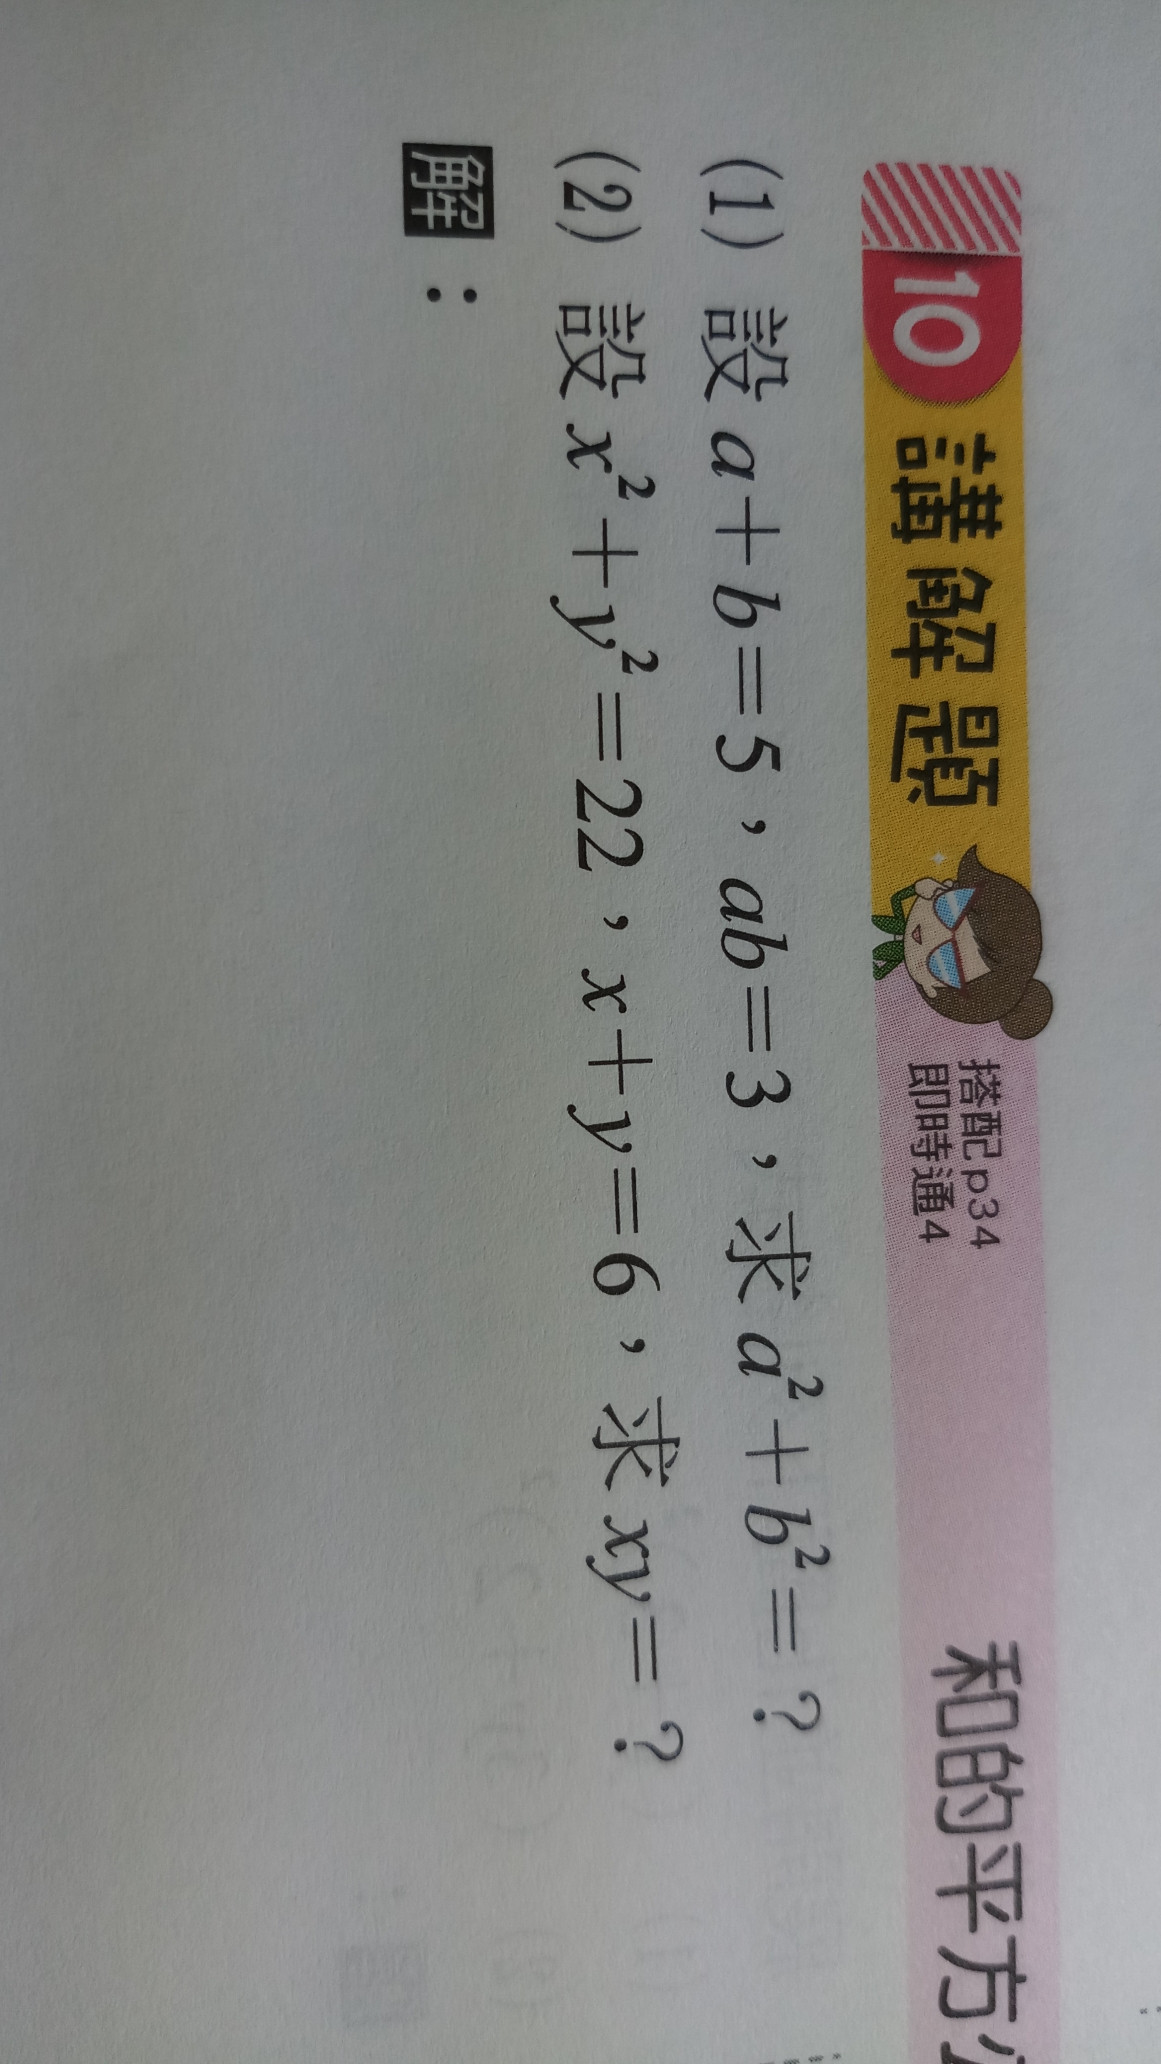 10 講解題 搭配p34 即時通4 和的平方
(1) 設a+b=5,ab=3,求a²+b²=?
(2) 設x²+y²=22,x+y=6,求xy=?
解: